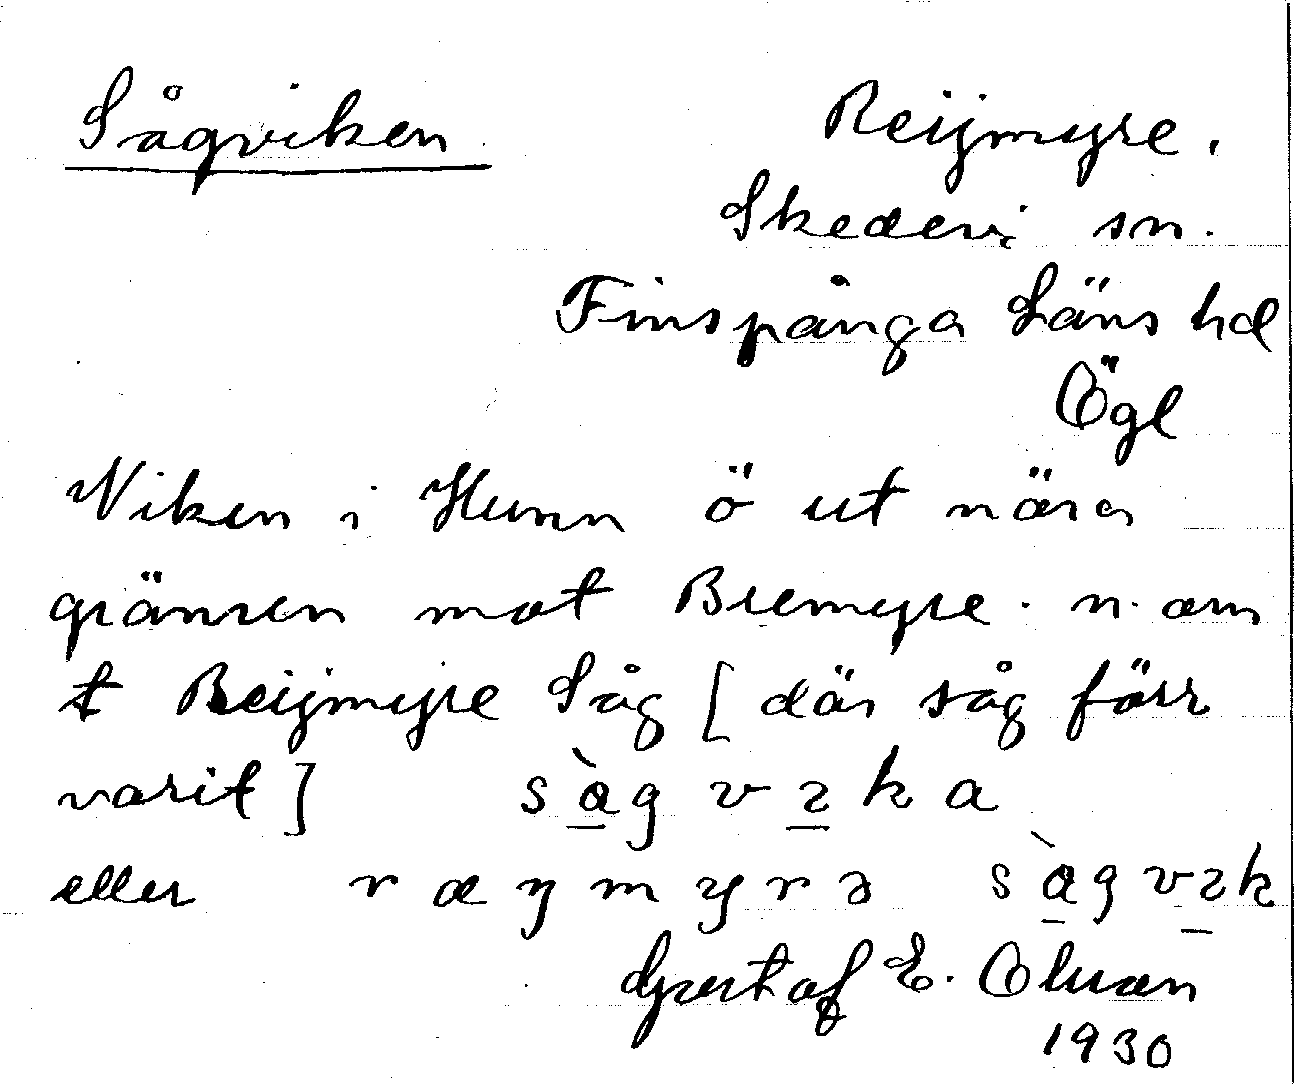 Sågviken
Reijmyre.
Skedevi sn.
Finspånga Läns hd
Ögl
Viken i Hunn ö ut nära
gränsen mot Bremyre. n. om
t Reijmyre Såg [där såg förr
varit]
eller
Gustaf E. Olson
1930